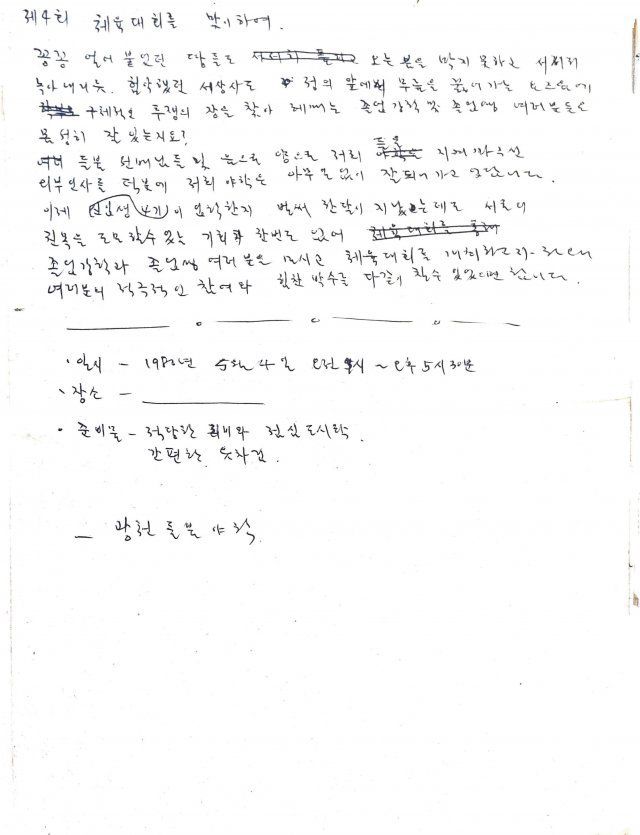 제4회 체육대회를 맞이하여.
꽁꽁 얼어 붙었던 땅들도 오는 봄을 막지 못하고 서서히
녹아내리듯. 험악했던 세상사도 정의 앞에서 무릎을 꿇어가는
구체적인 투쟁의 장을 찾아 헤매는 졸업강학 및 졸업생 여러분들은
몸 성히 잘 있는지요?
들불 선배님들 및 음으로 양으로 저희 들불 지켜봐주신
외부인사들 덕분에 저희 야학은 아무 일 없이 잘 되어가고 있답니다.
이제 신입생 4기이 입학한지 벌써 한달이 지났는데도 서로의
친목을 도모할수 있는 기회가 한번도 없어
졸업강학과 졸업생 여러분을 모시고 체육대회를 개최하고자 하오니
여러분의 적극적인 참여와 힘찬 박수를 다같이 칠수 있었으면 합니다.
· 일시 - 1980년 5월 4일 오전 9시 ~ 오후 5시 30분
· 장소 -
· 준비물 - 적당한 회비와 점심 도시락.
간편한 옷차림.
- 광천 들불 야학.